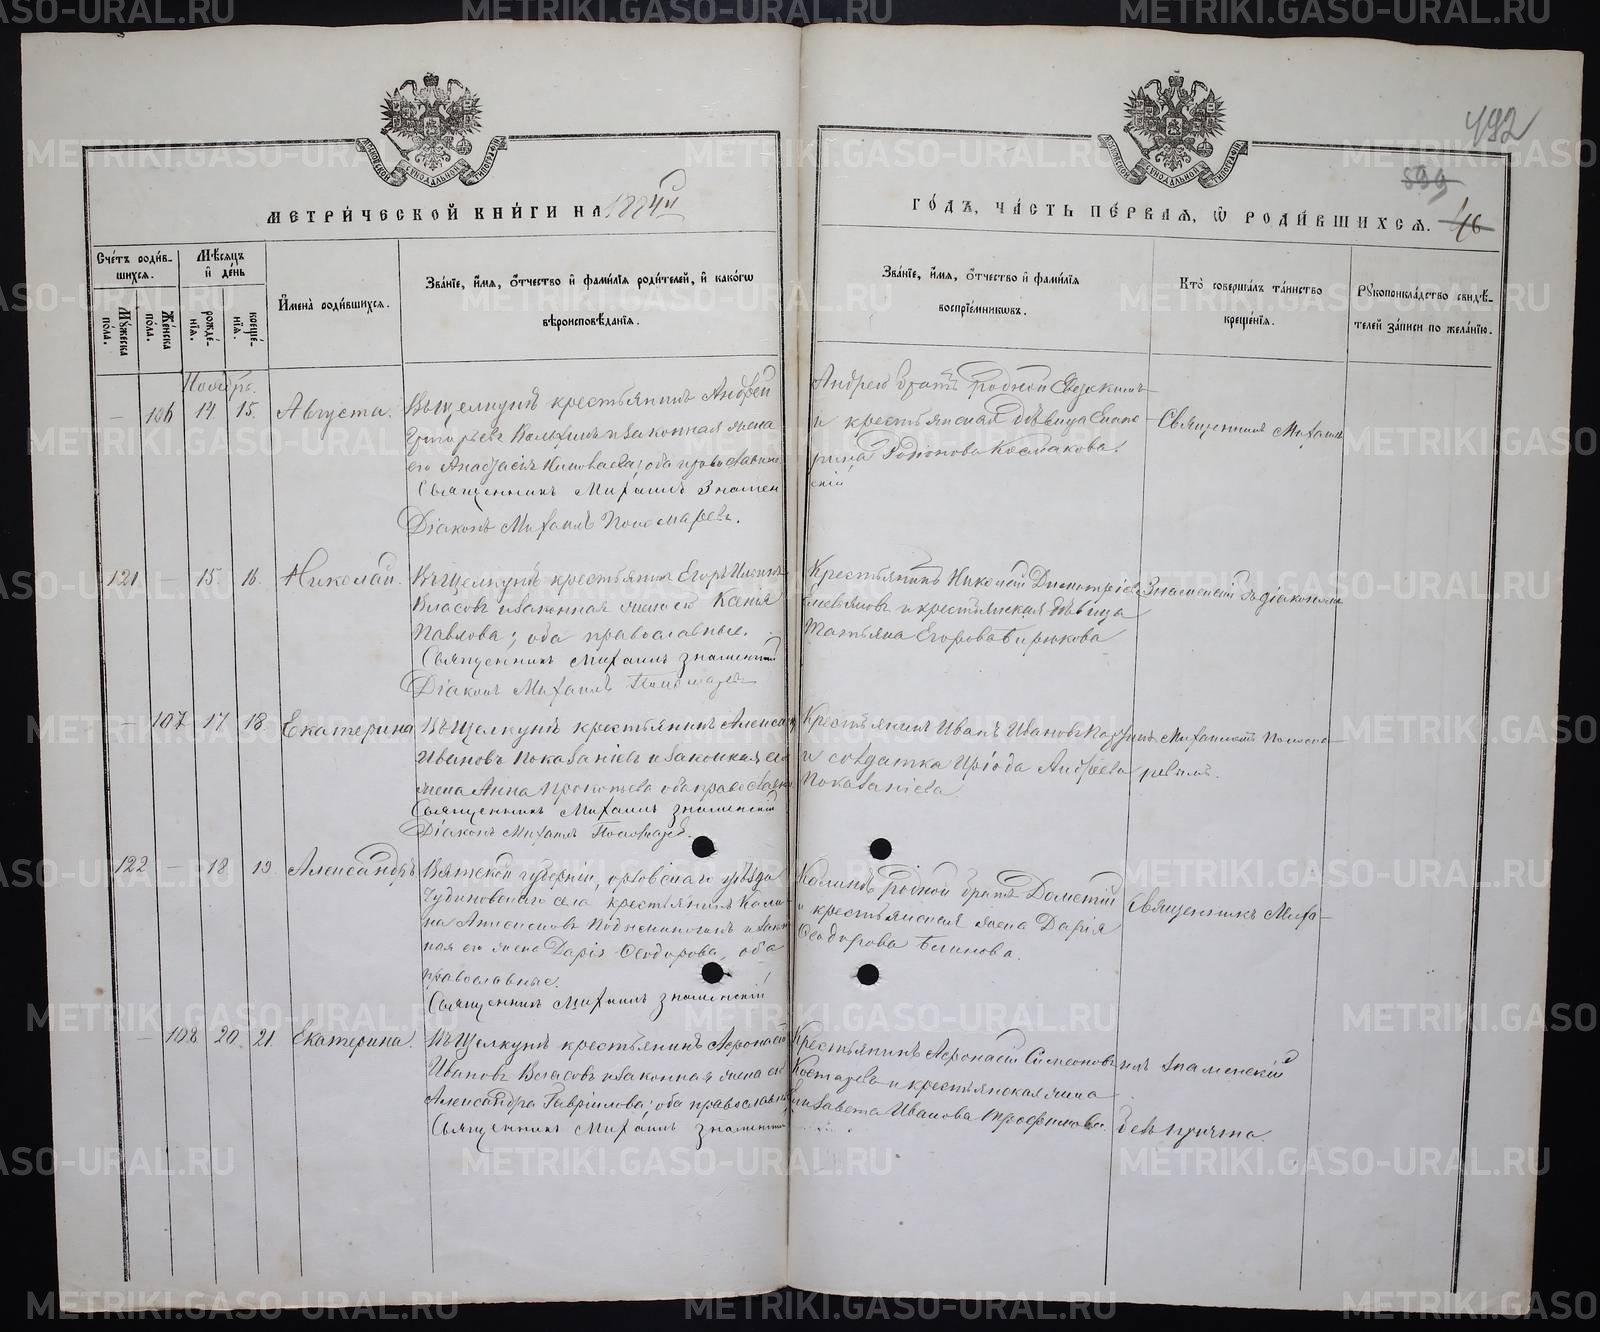 192
599
46
МОСКОВСКОЙ СѴНОДАЛЬНОЙ ТИПОГРАФІИ
МОСКОВСКОЙ СѴНОДАЛЬНОЙ ТИПОГРАФІИ
МЕТРИ́ЧЕСКОЙ КНИ́ГИ НА 1884й
ГО́ДЪ, ЧА́СТЬ ПЕ́РВАѦ, Ѡ РОДИ́ВШИХСѦ.
Сче́тъ роди́в-
шихсѧ.
Мꙋ́жеска
по́ла.
Же́нска
по́ла.
Мѣ́сѧцъ
и҆ де́нь
рожде́-
нїѧ.
креще́-
нїѧ.
И҆мена̀ роди́вшихсѧ.
Зва́нїе, и҆́мѧ, ѻ҆́тчество и҆ фами́лїѧ роди́телей, и҆ како́гѡ
вѣроисповѣ́данїѧ.
Зва́нїе, и҆́мѧ, ѻ҆́тчество и҆ фами́лїѧ
воспрїе́мникѡвъ.
Кто̀ соверша́лъ та́инство
креще́нїѧ.
Рꙋкоприкла́дство свидѣ́-
телей за́писи по жела́нїю.
Ноябрь.
— 106 14 15. Августа.
Въ Щелкунѣ крестьянинъ Андрей
Григорьевъ и законная жена
его Анастасія оба православные
Священникъ Михаилъ Знамен
скій
Діаконъ Михаилъ Пономаревъ.
Андрею братъ родной
и крестьянская дѣвица Екате-
рина Родіонова Космакова.
Священникъ Михаилъ
121 — 15. 16. Николай.
Въ Щелкунѣ крестьянинъ Егоръ
Власовъ и законная жена его Ксенія
Павлова; оба православные.
Священникъ Михаилъ Знаменскій
Діаконъ Михаилъ Пономаревъ
Крестьянинъ Николай Димитріевъ
и крестьянская дѣвица
Татьяна Егорова Бирюкова
Знаменскій съ діакономъ
— 107 17 18. Екатерина
Въ Щелкунѣ крестьянинъ Александръ
Ивановъ Показаніевъ и законная его
жена Анна Прокопьева оба православные
Священникъ Михаилъ Знаменскій
Діаконъ Михаилъ Пономаревъ.
Крестьянинъ Иванъ Ивановъ
и солдатка Андреева
Показаніева
Михаиломъ Понома-
ревымъ.
122 — 18 19 Александръ
Вятской губерніи, орловскаго уѣзда
села крестьянинъ Кали-
на и закон
ная его жена Дарія Ѳеодорова, оба
православные.
Священникъ Михаилъ Знаменскій
Калинѣ родной братъ Дометій
и крестьянская жена Дарія
Ѳеодорова
Священникъ Миха-
— 108 20. 21 Екатерина.
Въ Щелкунѣ крестьянинъ Аѳонасій
Ивановъ Власовъ и законная жена его
Александра Гавріилова; оба православные
Священникъ Михаилъ Знаменскій
Крестьянинъ Аѳонасій Симеоновъ
Костаревъ и крестьянская жена
Елизавета Иванова Трофимова.
илъ Знаменскій
безъ причта.
METRIKI.GASO-URAL.RU